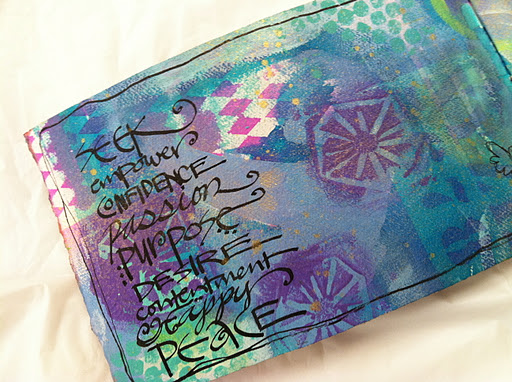 SEEK
empower
CONFIDENCE
passion
PURPOSE
DESIRE
contentment
Happy
PEACE